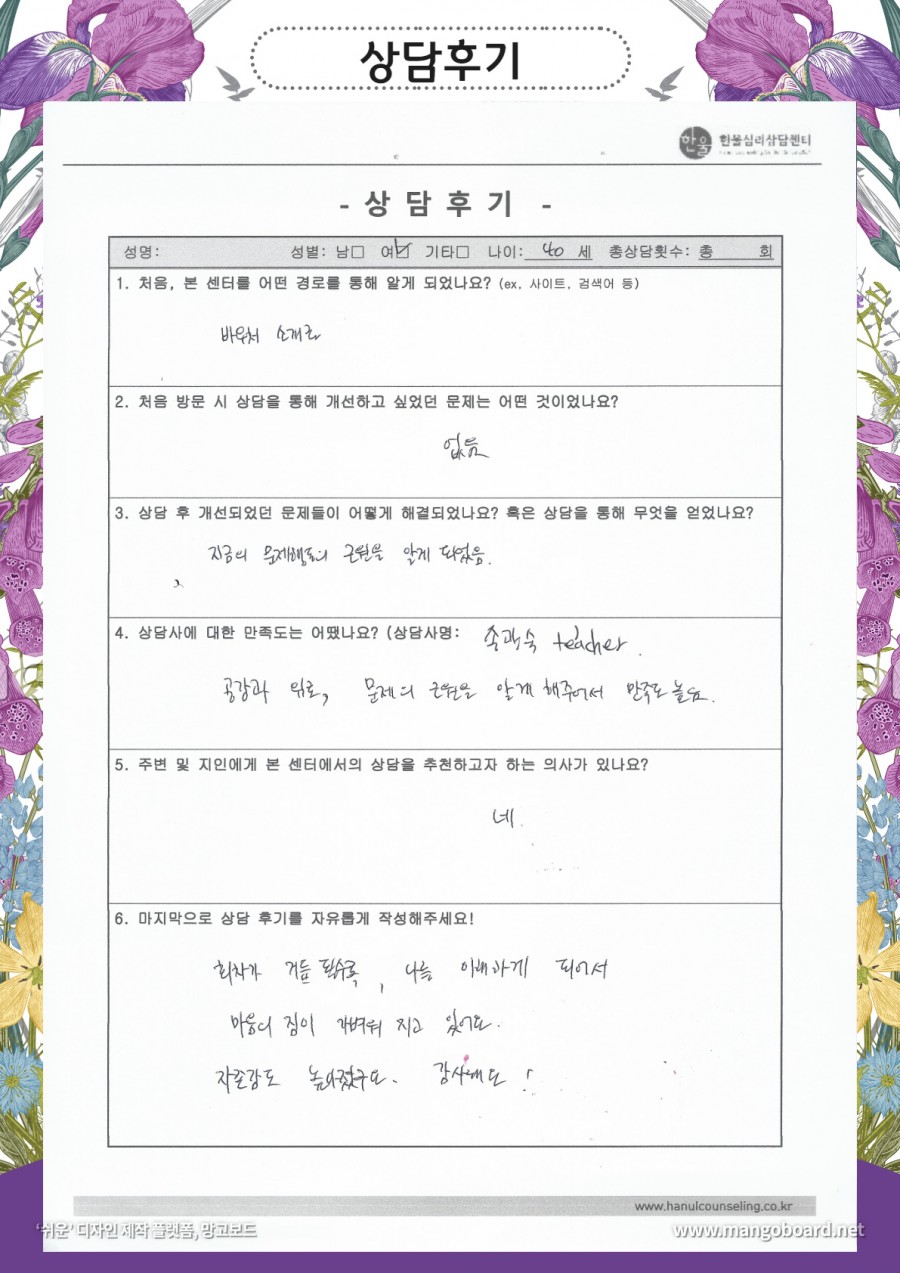 상담후기
한울 한울심리상담센터
- 상 담 후 기 -
성명: 성별: 남□ 여☑ 기타□ 나이: 40 세 총상담횟수: 총 회
1. 처음, 본 센터를 어떤 경로를 통해 알게 되었나요? (ex, 사이트, 검색어 등)
바우처 소개로
2. 처음 방문 시 상담을 통해 개선하고 싶었던 문제는 어떤 것이었나요?
없음
3. 상담 후 개선되었던 문제들이 어떻게 해결되었나요? 혹은 상담을 통해 무엇을 얻었나요?
지금의 문제행동의 근원을 알게 되었음.
4. 상담사에 대한 만족도는 어땠나요? (상담사명: teacher.
공감과 위로, 문제의 근원을 알게 해주어서 만족도 높음.
5. 주변 및 지인에게 본 센터에서의 상담을 추천하고자 하는 의사가 있나요?
네.
6. 마지막으로 상담 후기를 자유롭게 작성해주세요!
회차가 거듭 될수록, 나를 이해하게 되어서
마음의 짐이 가벼워 지고 있어요.
자존감도 높아졌구요. 감사해요!
www.hanulcounseling.co.kr
'쉬운' 디자인 제작 플랫폼, 망고보드
www.mangoboard.net